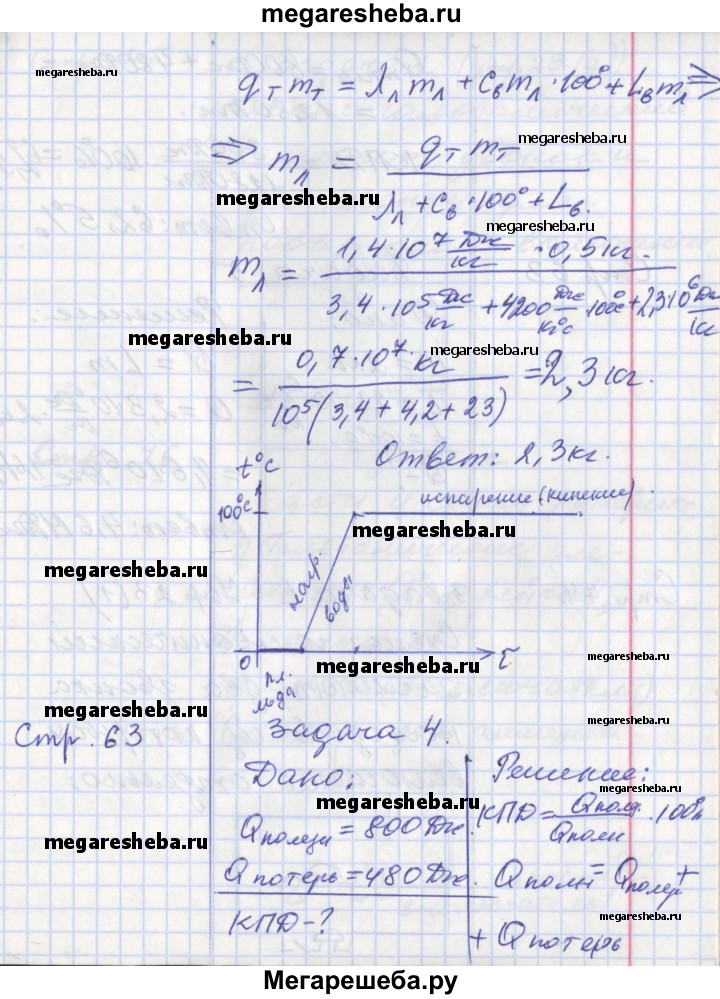 megaresheba.ru
megaresheba.ru
megaresheba.ru
qТ mТ = λЛ mЛ + cВ mЛ · 100° + LВ mЛ ⇒
megaresheba.ru
⇒ mЛ = qТ mТ / (λЛ + cВ · 100° + LВ.)
megaresheba.ru
megaresheba.ru
mЛ = (1,4 · 10⁷ Дж/кг · 0,5 кг.) / (3,4 · 10⁵ Дж/кг + 4200 Дж/кг°С · 100° + 2,3·10⁶ Дж/кг)
megaresheba.ru
megaresheba.ru
= 0,7 · 10⁷ · кг / 10⁵(3,4 + 4,2 + 23) = 2,3 кг.
megaresheba.ru
Ответ: 2,3 кг.
t°C
испарение (кипение)
100°C
megaresheba.ru
megaresheba.ru
нагр.
воды
0
τ
megaresheba.ru
megaresheba.ru
пл.
льда
megaresheba.ru
megaresheba.ru
Стр. 63
Задача 4.
Дано:
Решение:
megaresheba.ru
megaresheba.ru
Qполезн = 800 Дж.
КПД = Qполез. / Qполн · 100%
megaresheba.ru
megaresheba.ru
Qпотерь = 480 Дж.
Qполн = Qполезн +
КПД - ?
megaresheba.ru
+ Qпотерь
Мегарешеба.ру